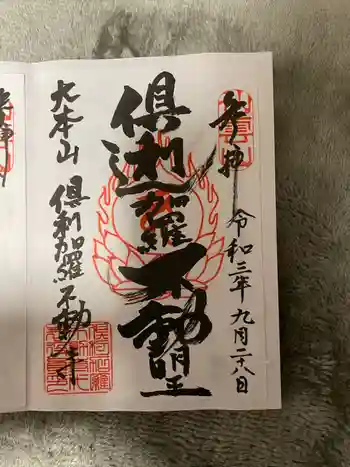 奉拝
令和三年九月二十八日
倶利迦羅不動明王
大本山 倶利迦羅不動寺